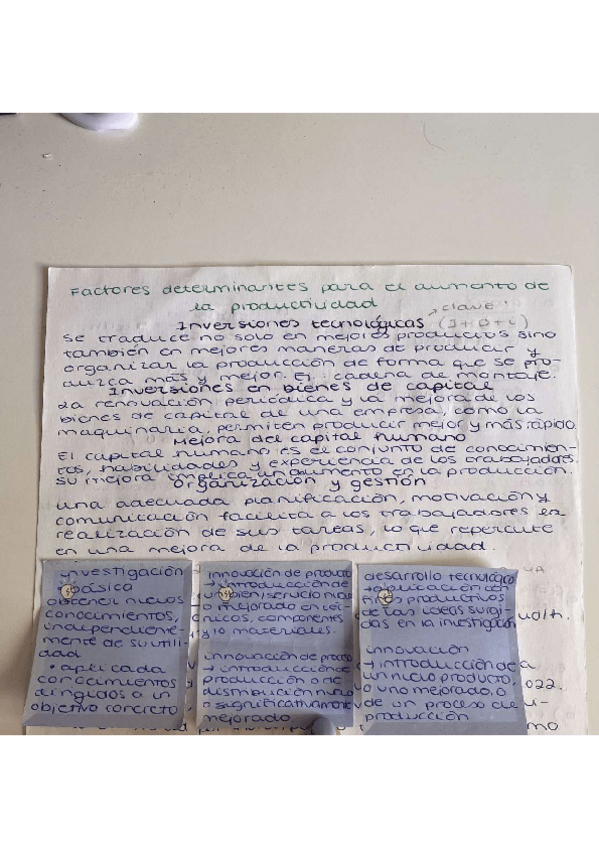 Factores determinantes para el aumento de
la productividad
Inversiones tecnológicas → clave
(I+D+i)
se traduce no solo en mejores productos sino
también en mejores maneras de producir y
organizar la producción de forma que se pro-
duzca más y mejor. Ej: cadena de montaje.
Inversiones en bienes de capital
La renovación periódica y la mejora de los
bienes de capital de una empresa, como la
maquinaria, permiten producir mejor y más rápido.
Mejora del capital humano
El capital humano es el conjunto de conocimien-
tos, habilidades y experiencia de los trabajadores.
su mejora implica un aumento en la producción.
Organización y gestión
una adecuada planificación, motivación y
comunicación facilita a los trabajadores
realización de sus tareas, lo que repercute
en una mejora de la productividad.
investigación
básica
obtener nuevos
conocimientos,
independiente-
mente de su utili-
dad
• aplicada
conocimientos
dirigidos a un
objetivo concreto
innovación de producto
→ introducción de
un bien/servicio nuevo
o mejorado en téc-
nicos, componentes
y/o materiales.
innovación de proceso
→ introducción de
producción o de
distribución nuevo
o significativamente
mejorado
desarrollo tecnológico
→ aplicación con
fines productivos
de las ideas surgi-
das en la investigación
innovación
→ introducción de
un nuevo producto,
o uno mejorado, o
de un proceso de
producción
022.
mo